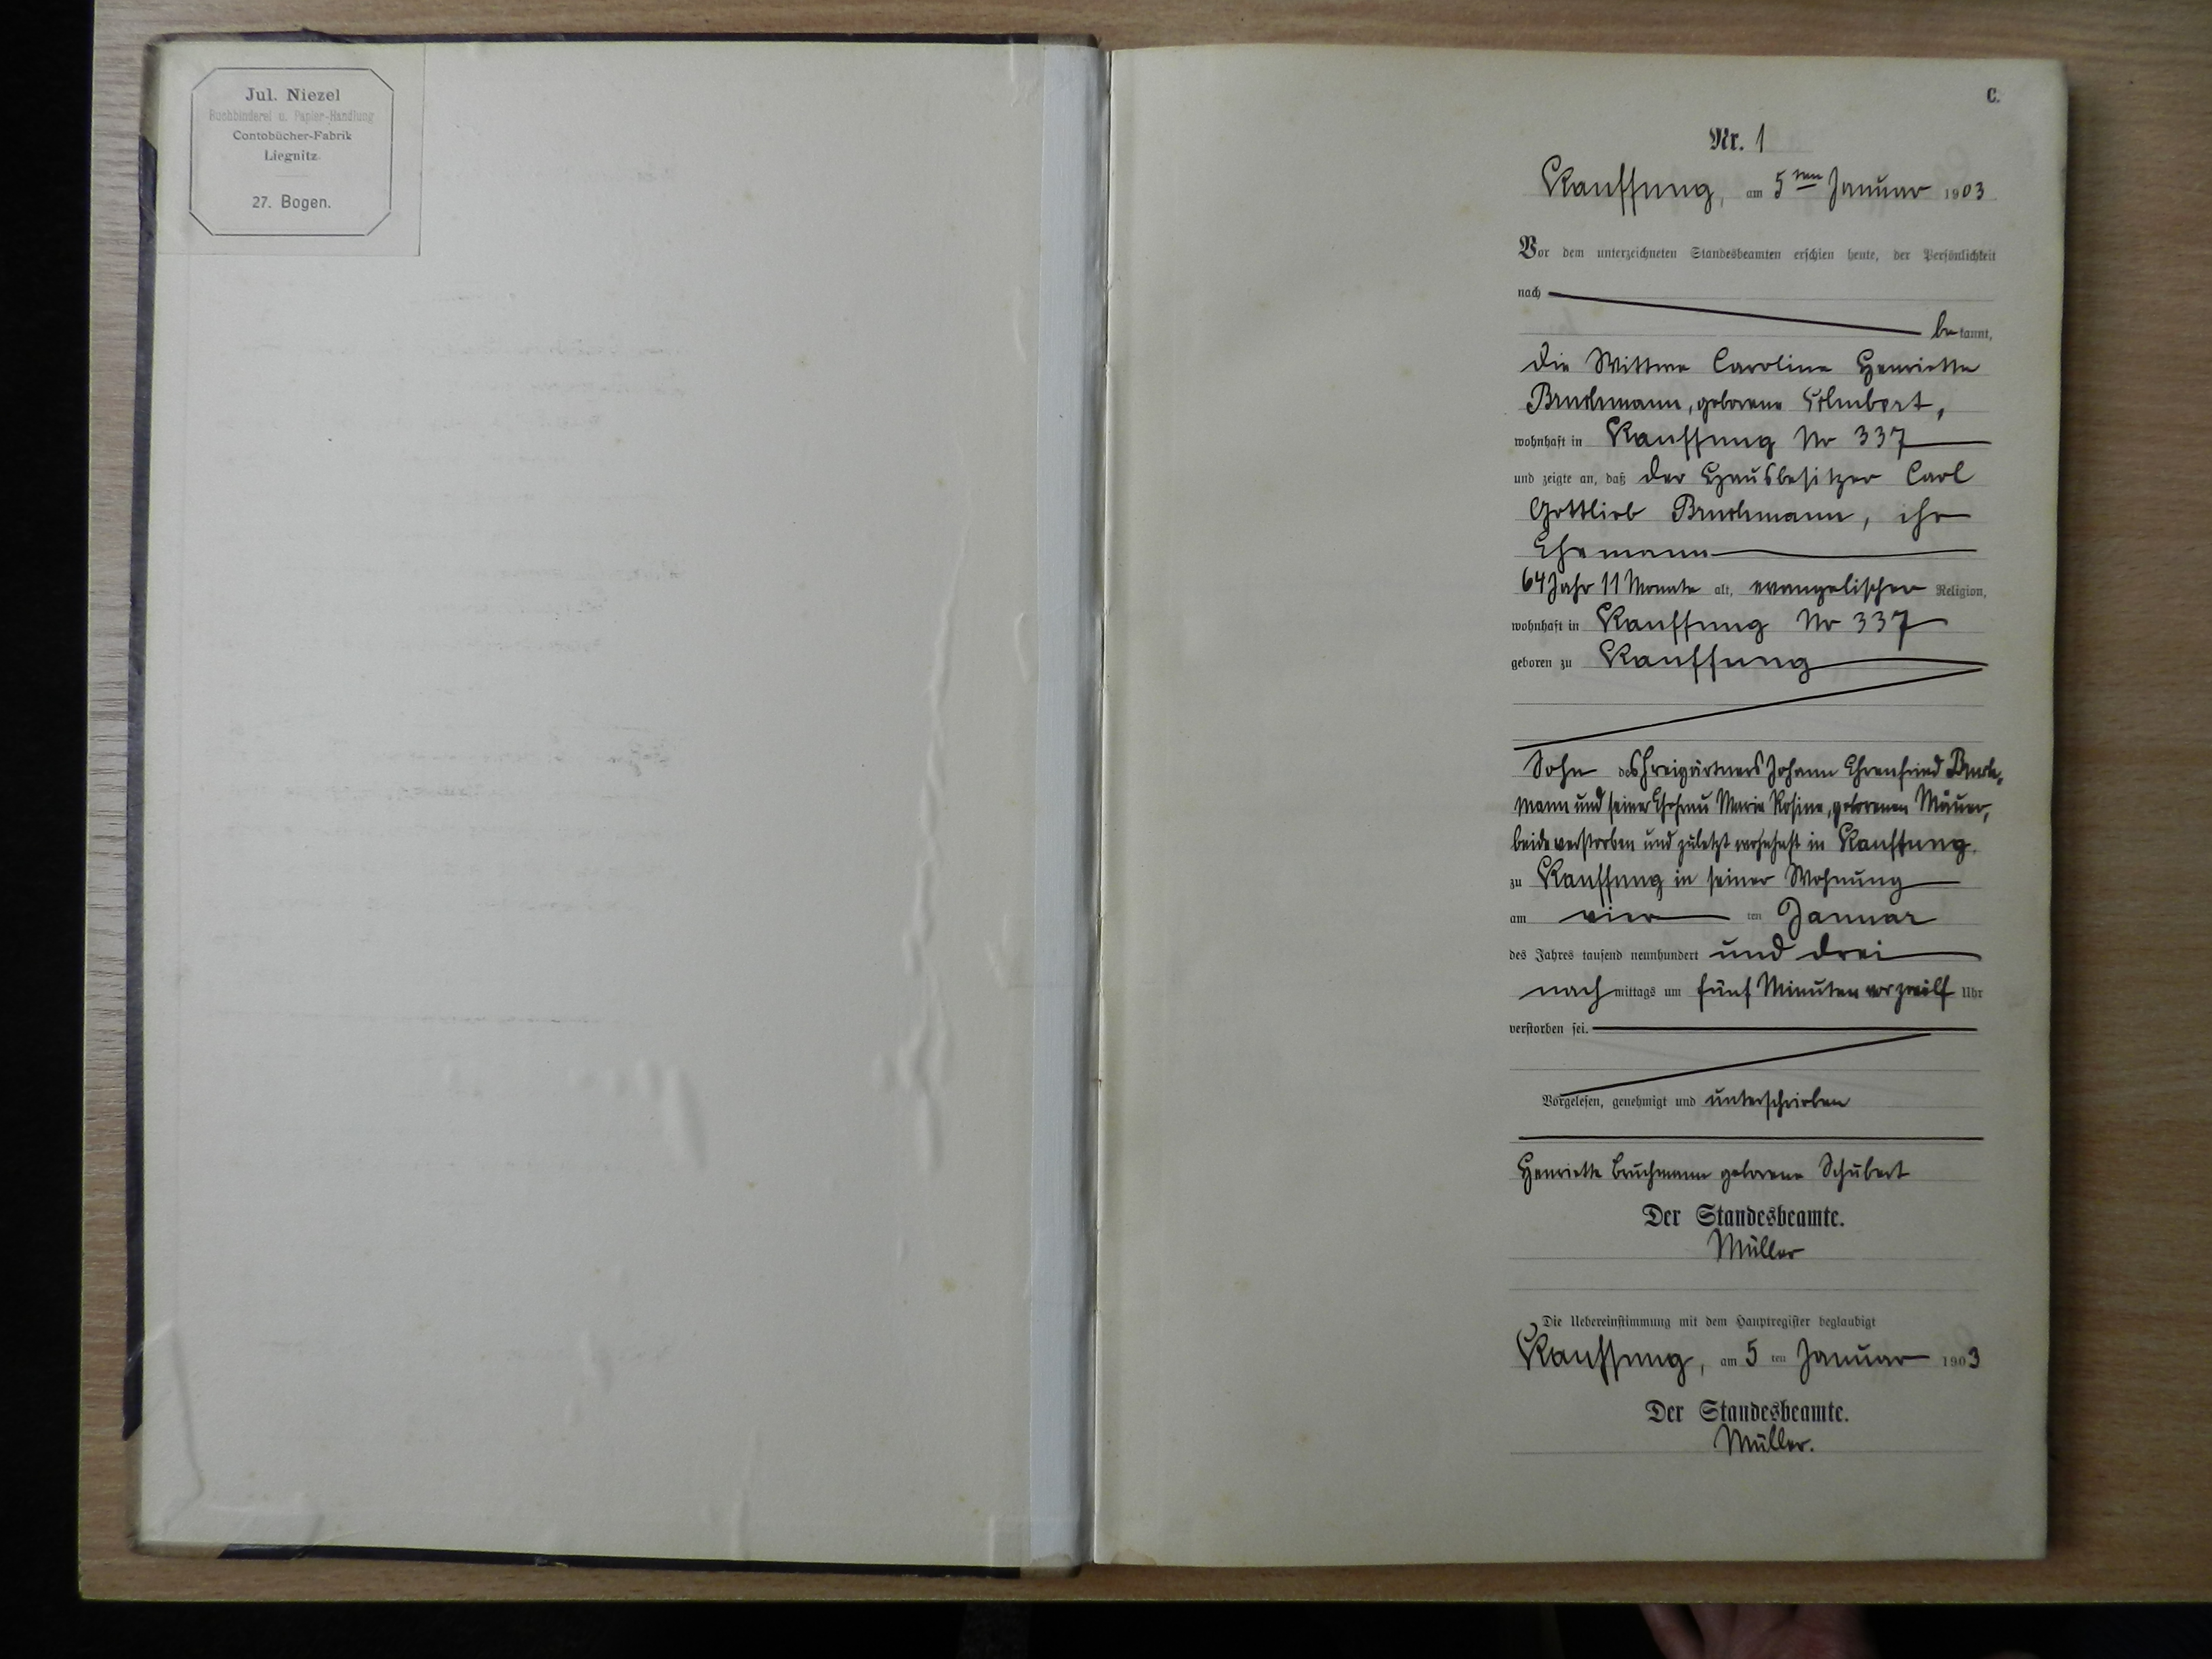 Jul. Niezel
Buchbinderei u. Papier-Handlung
Contobücher-Fabrik
Liegnitz
27. Bogen.
C.
Nr. 1
Kauffung, am 5ten Januar 1903
Vor dem unterzeichneten Standesbeamten erschien heute, der Persönlichkeit
nach
bekannt,
die Wittwe Caroline Henriette
Bruchmann, geborene Schubert,
wohnhaft in Kauffung Nr 337
und zeigte an, daß der Hausbesitzer Carl
Gottlieb Bruchmann, ihr
Ehemann
64 Jahr 11 Monate alt, evangelischer Religion,
wohnhaft in Kauffung Nr 337
geboren zu Kauffung
Sohn des Freigärtners Johann Ehrenfried Bruch-
mann und seiner Ehefrau Maria Rosina, geborenen Mäuer,
beide verstorben und zuletzt wohnhaft in Kauffung.
zu Kauffung in seiner Wohnung
am vierten Januar
des Jahres tausend neunhundert und drei
nachmittags um fünf Minuten vor zwölf Uhr
verstorben sei.
Vorgelesen, genehmigt und unterschrieben
Henriette Bruchmann geborene Schubert
Der Standesbeamte.
Müller
Die Uebereinstimmung mit dem Hauptregister beglaubigt
Kauffung, am 5ten Januar 1903
Der Standesbeamte.
Müller.